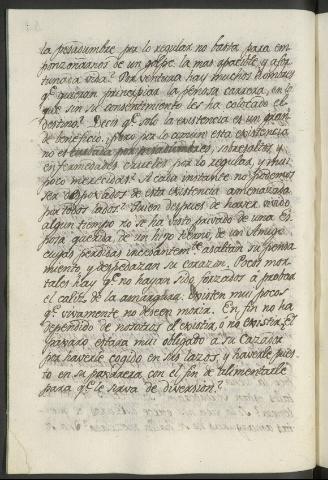 la pesadumbre por lo regular no basta para em
ponzoñarnos de un golpe la mas apacible y afor
tunada vida? Por ventura hay muchos hombres
qe. quieran principiar la penosa carrera, en lo
que sin su consentimiento les ha colocado el
destino? Decís qe. solo la existencia es un gran
de beneficio; ¿pero por lo comun esta existencia
no es turbada por pesadumbres, sobresaltos y
enfermedades crueles por lo regular, y mui
poco merecidas? A cada instante no podemos
ser despojados de esta existencia amenazada
por todos lados? Quien despues de haver vivido
algun tiempo no se ha visto privado de una es
posa querida, de un hijo tierno, de un Amigo
cuyas perdidas incesantemte. asaltan su pensa
miento, y despedazan su corazon. Pocos mor
tales hay qe. no hayan sido forzados a probar
el caliz de la amargura. Existen mui pocos
qe. vivamente no deseen morir. En fin no ha
dependido de nosotros el existir, o no existir. El
pajaro estara mui obligado a su Cazador
por haverle cogido en sus lazos, y haverle pues
to en su pajarera con el fin de alimentarle
para qe. le sirva de diversion?